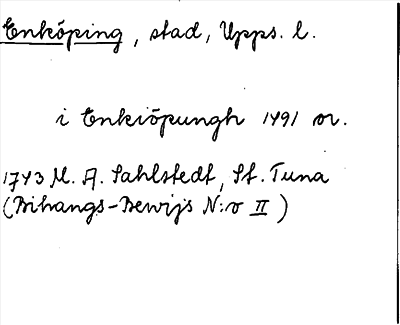 Enköping, stad, Upps. l.
i Enkiöpungh 1491 or.
1743 M. A. Sahlstedt, St. Tuna
(Bihangs-Bewijs N:o II)